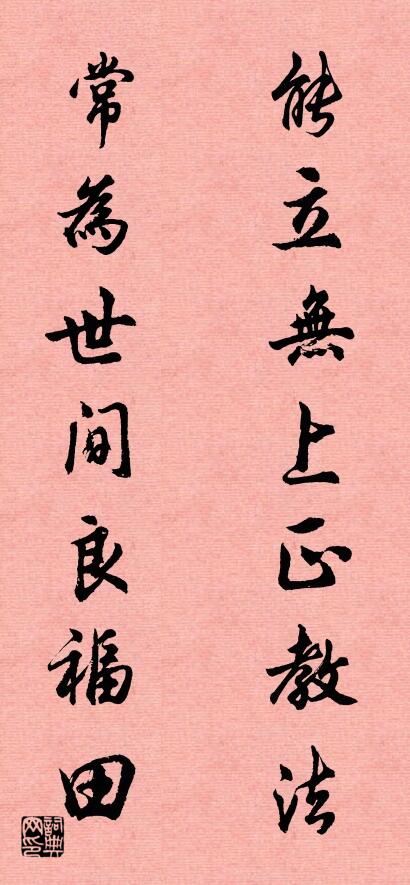 能立無上正教法
常為世間良福田
詞典網印